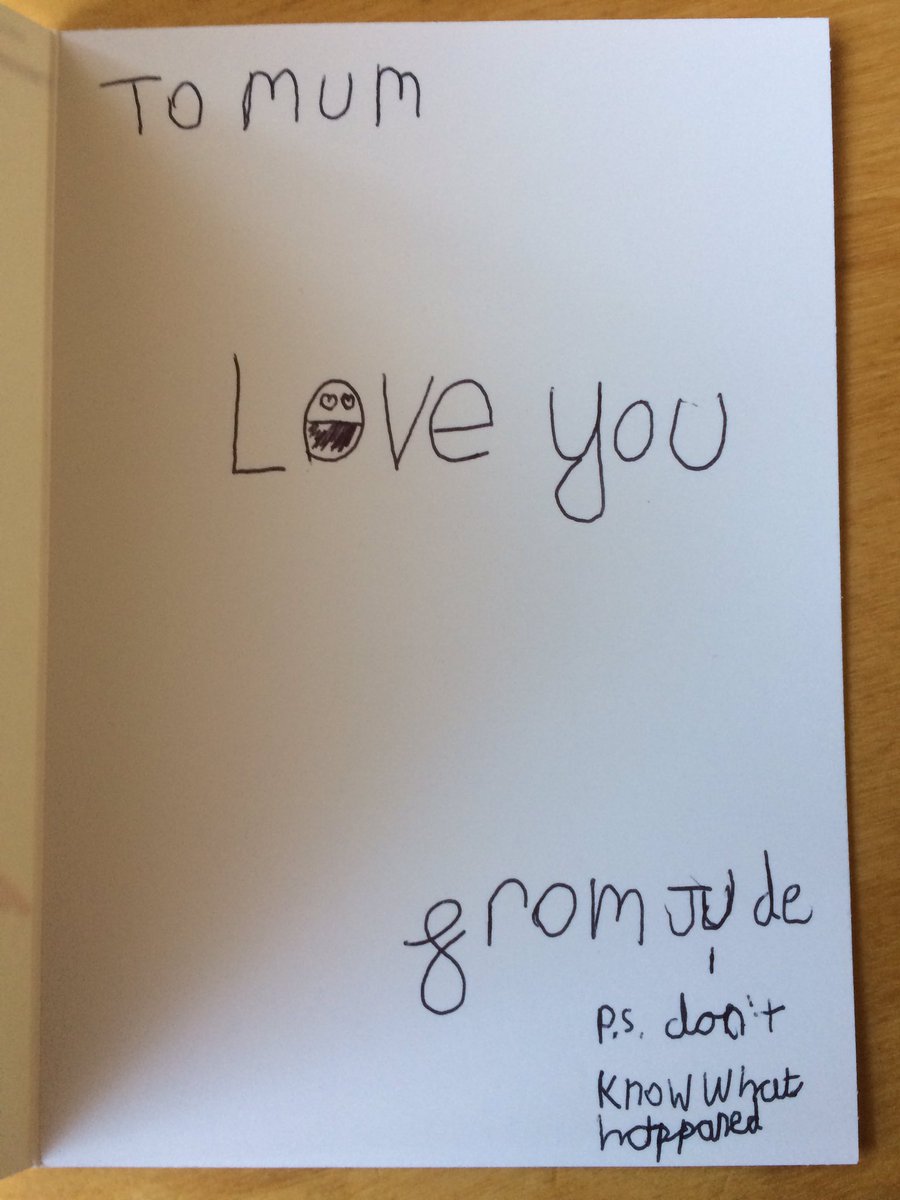 To mum
Love you
from Jude
P.S. don't
know what
happaned